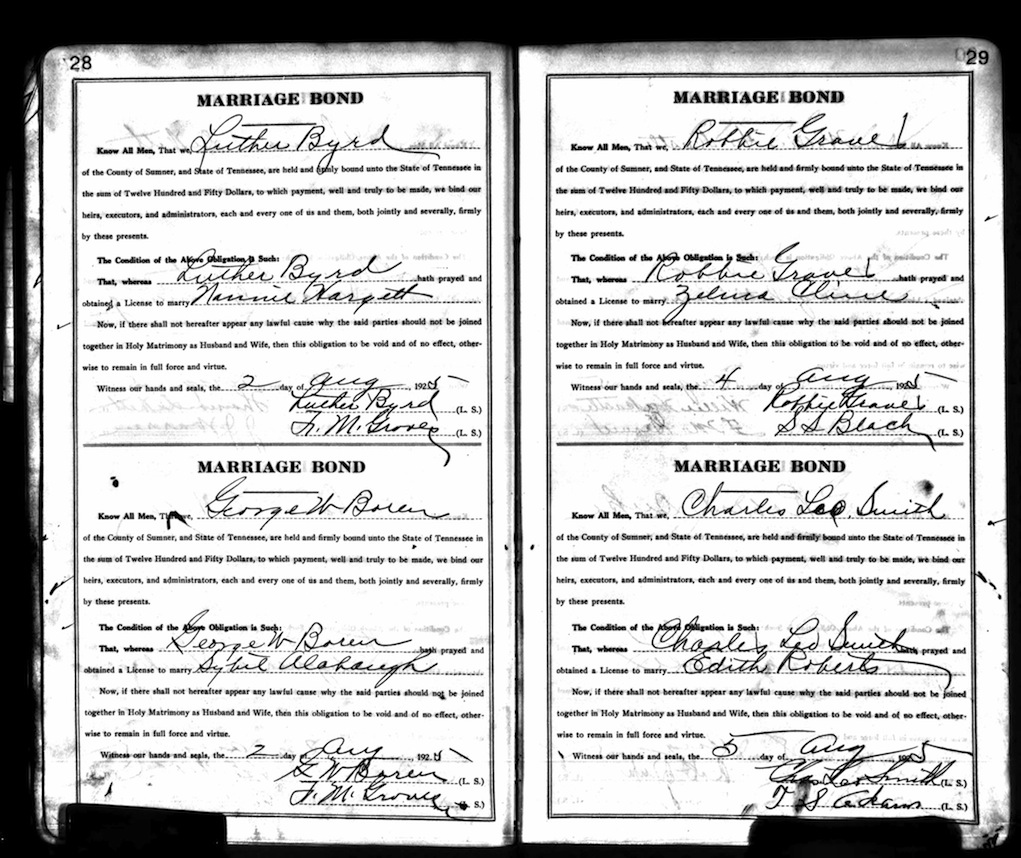 28
MARRIAGE BOND
Know All Men, That we, Luther Byrd
of the County of Sumner, and State of Tennessee, are held and firmly bound unto the State of Tennessee in
the sum of Twelve Hundred and Fifty Dollars, to which payment, well and truly to be made, we bind our
heirs, executors, and administrators, each and every one of us and them, both jointly and severally, firmly
by these presents.
The Condition of the Above Obligation is Such:
That, whereas Luther Byrd hath prayed and
obtained a License to marry Nannie Hargett
Now, if there shall not hereafter appear any lawful cause why the said parties should not be joined
together in Holy Matrimony as Husband and Wife, then this obligation to be void and of no effect, other-
wise to remain in full force and virtue.
Witness our hands and seals, the 2 day of Aug, 1925
Luther Byrd (L. S.)
F. M. Groves (L. S.)
MARRIAGE BOND
Know All Men, That we, George W Boren
of the County of Sumner, and State of Tennessee, are held and firmly bound unto the State of Tennessee in
the sum of Twelve Hundred and Fifty Dollars, to which payment, well and truly to be made, we bind our
heirs, executors, and administrators, each and every one of us and them, both jointly and severally, firmly
by these presents.
The Condition of the Above Obligation is Such:
That, whereas George W Boren hath prayed and
obtained a License to marry Sybil
Now, if there shall not hereafter appear any lawful cause why the said parties should not be joined
together in Holy Matrimony as Husband and Wife, then this obligation to be void and of no effect, other-
wise to remain in full force and virtue.
Witness our hands and seals, the 2 day of Aug 1925
G W Boren (L. S.)
F. M. Groves (L. S.)
29
MARRIAGE BOND
Know All Men, That we, Robbie Graves
of the County of Sumner, and State of Tennessee, are held and firmly bound unto the State of Tennessee in
the sum of Twelve Hundred and Fifty Dollars, to which payment, well and truly to be made, we bind our
heirs, executors, and administrators, each and every one of us and them, both jointly and severally, firmly
by these presents.
The Condition of the Above Obligation is Such:
That, whereas Robbie Graves hath prayed and
obtained a License to marry Zelma Cline
Now, if there shall not hereafter appear any lawful cause why the said parties should not be joined
together in Holy Matrimony as Husband and Wife, then this obligation to be void and of no effect, other-
wise to remain in full force and virtue.
Witness our hands and seals, the 4 day of Aug 1925
Robbie Graves (L. S.)
S S Beach (L. S.)
MARRIAGE BOND
Know All Men, That we, Charles Leo Smith
of the County of Sumner, and State of Tennessee, are held and firmly bound unto the State of Tennessee in
the sum of Twelve Hundred and Fifty Dollars, to which payment, well and truly to be made, we bind our
heirs, executors, and administrators, each and every one of us and them, both jointly and severally, firmly
by these presents.
The Condition of the Above Obligation is Such:
That, whereas Charles Leo Smith hath prayed and
obtained a License to marry Edith Roberts
Now, if there shall not hereafter appear any lawful cause why the said parties should not be joined
together in Holy Matrimony as Husband and Wife, then this obligation to be void and of no effect, other-
wise to remain in full force and virtue.
Witness our hands and seals, the 5 day of Aug 1925
Chas Leo Smith (L. S.)
T S Adams (L. S.)